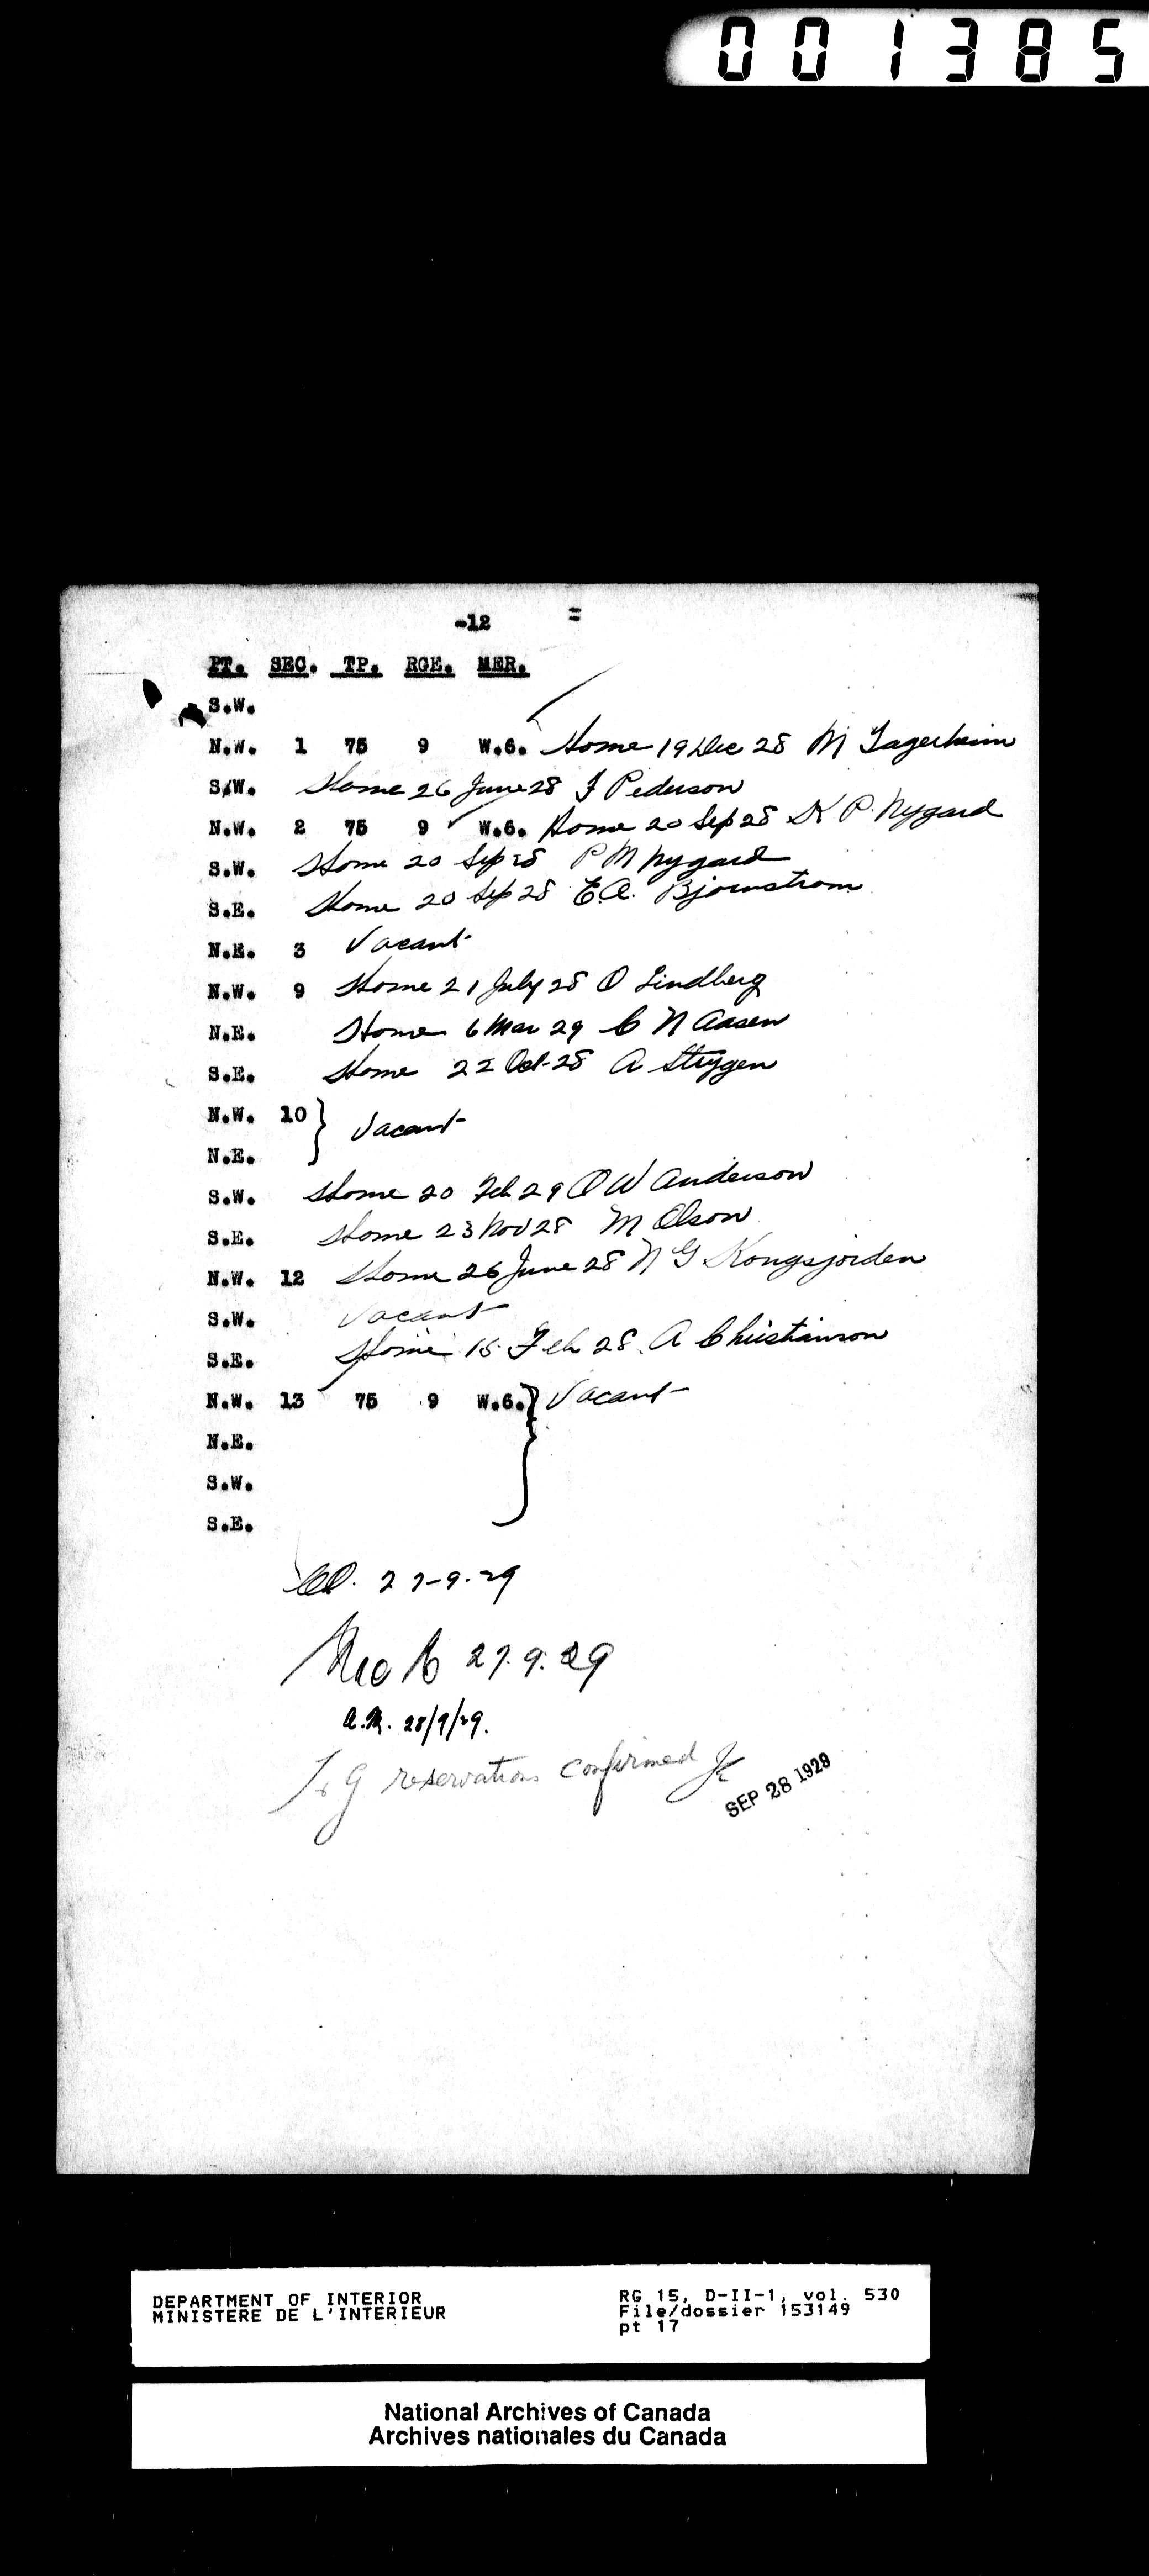 001385
-12 =
PT. SEC. TP. RGE. MER.
S.W.
N.W. 1 75 9 W.6. Home 19 Dec 28 M Lagerheim
S.W. Home 26 June 28 J Pederson
N.W. 2 75 9 W.6. Home 20 Sep 28 K P Nygard
S.W. Home 20 Sep 28 P M Nygard
S.E. Home 20 Sep 28 E.A. Bjornstrom
N.E. 3 Vacant
N.W. 9 Home 21 July 28 O Lindberg
N.E. Home 6 Mar 29 C N Aasen
S.E. Home 22 Oct-28 A Strygen
N.W. 10 } Vacant
N.E.
S.W. Home 20 Feb 29 O W Anderson
S.E. Home 23 Nov 28 M Olson
N.W. 12 Home 26 June 28 N G Kongsjorden
S.W. Vacant
S.E. Home 15 Feb 28 A Christianson
N.W. 13 75 9 W.6. } Vacant
N.E.
S.W.
S.E.
27-9-29
27.9.29
28/9/29.
G reservations confirmed
SEP 28 1929
DEPARTMENT OF INTERIOR
MINISTERE DE L'INTERIEUR
RG 15, D-II-1, vol. 530
File/dossier 153149
pt 17
National Archives of Canada
Archives nationales du Canada